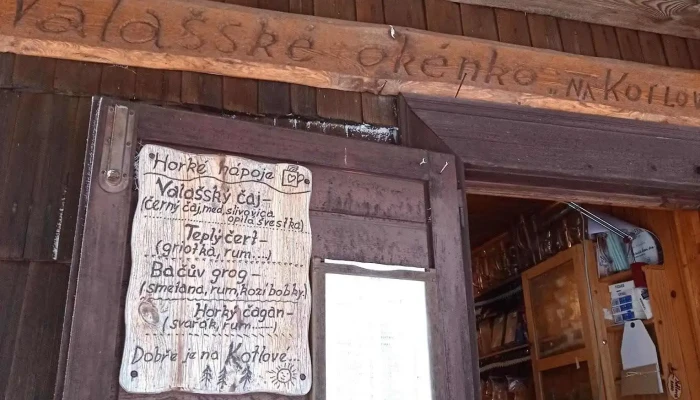 Valašské okénko „NA KOTLOV
Horké nápoje
Valašský čaj-
(černý čaj, med, slivovica
opilá švestka)
Teplý čert-
(griotka, rum....)
Bačův grog-
(smetana, rum, kozí bobky)
Horký čagan-
(svařák, rum.....)
Dobře je na Kotlové...